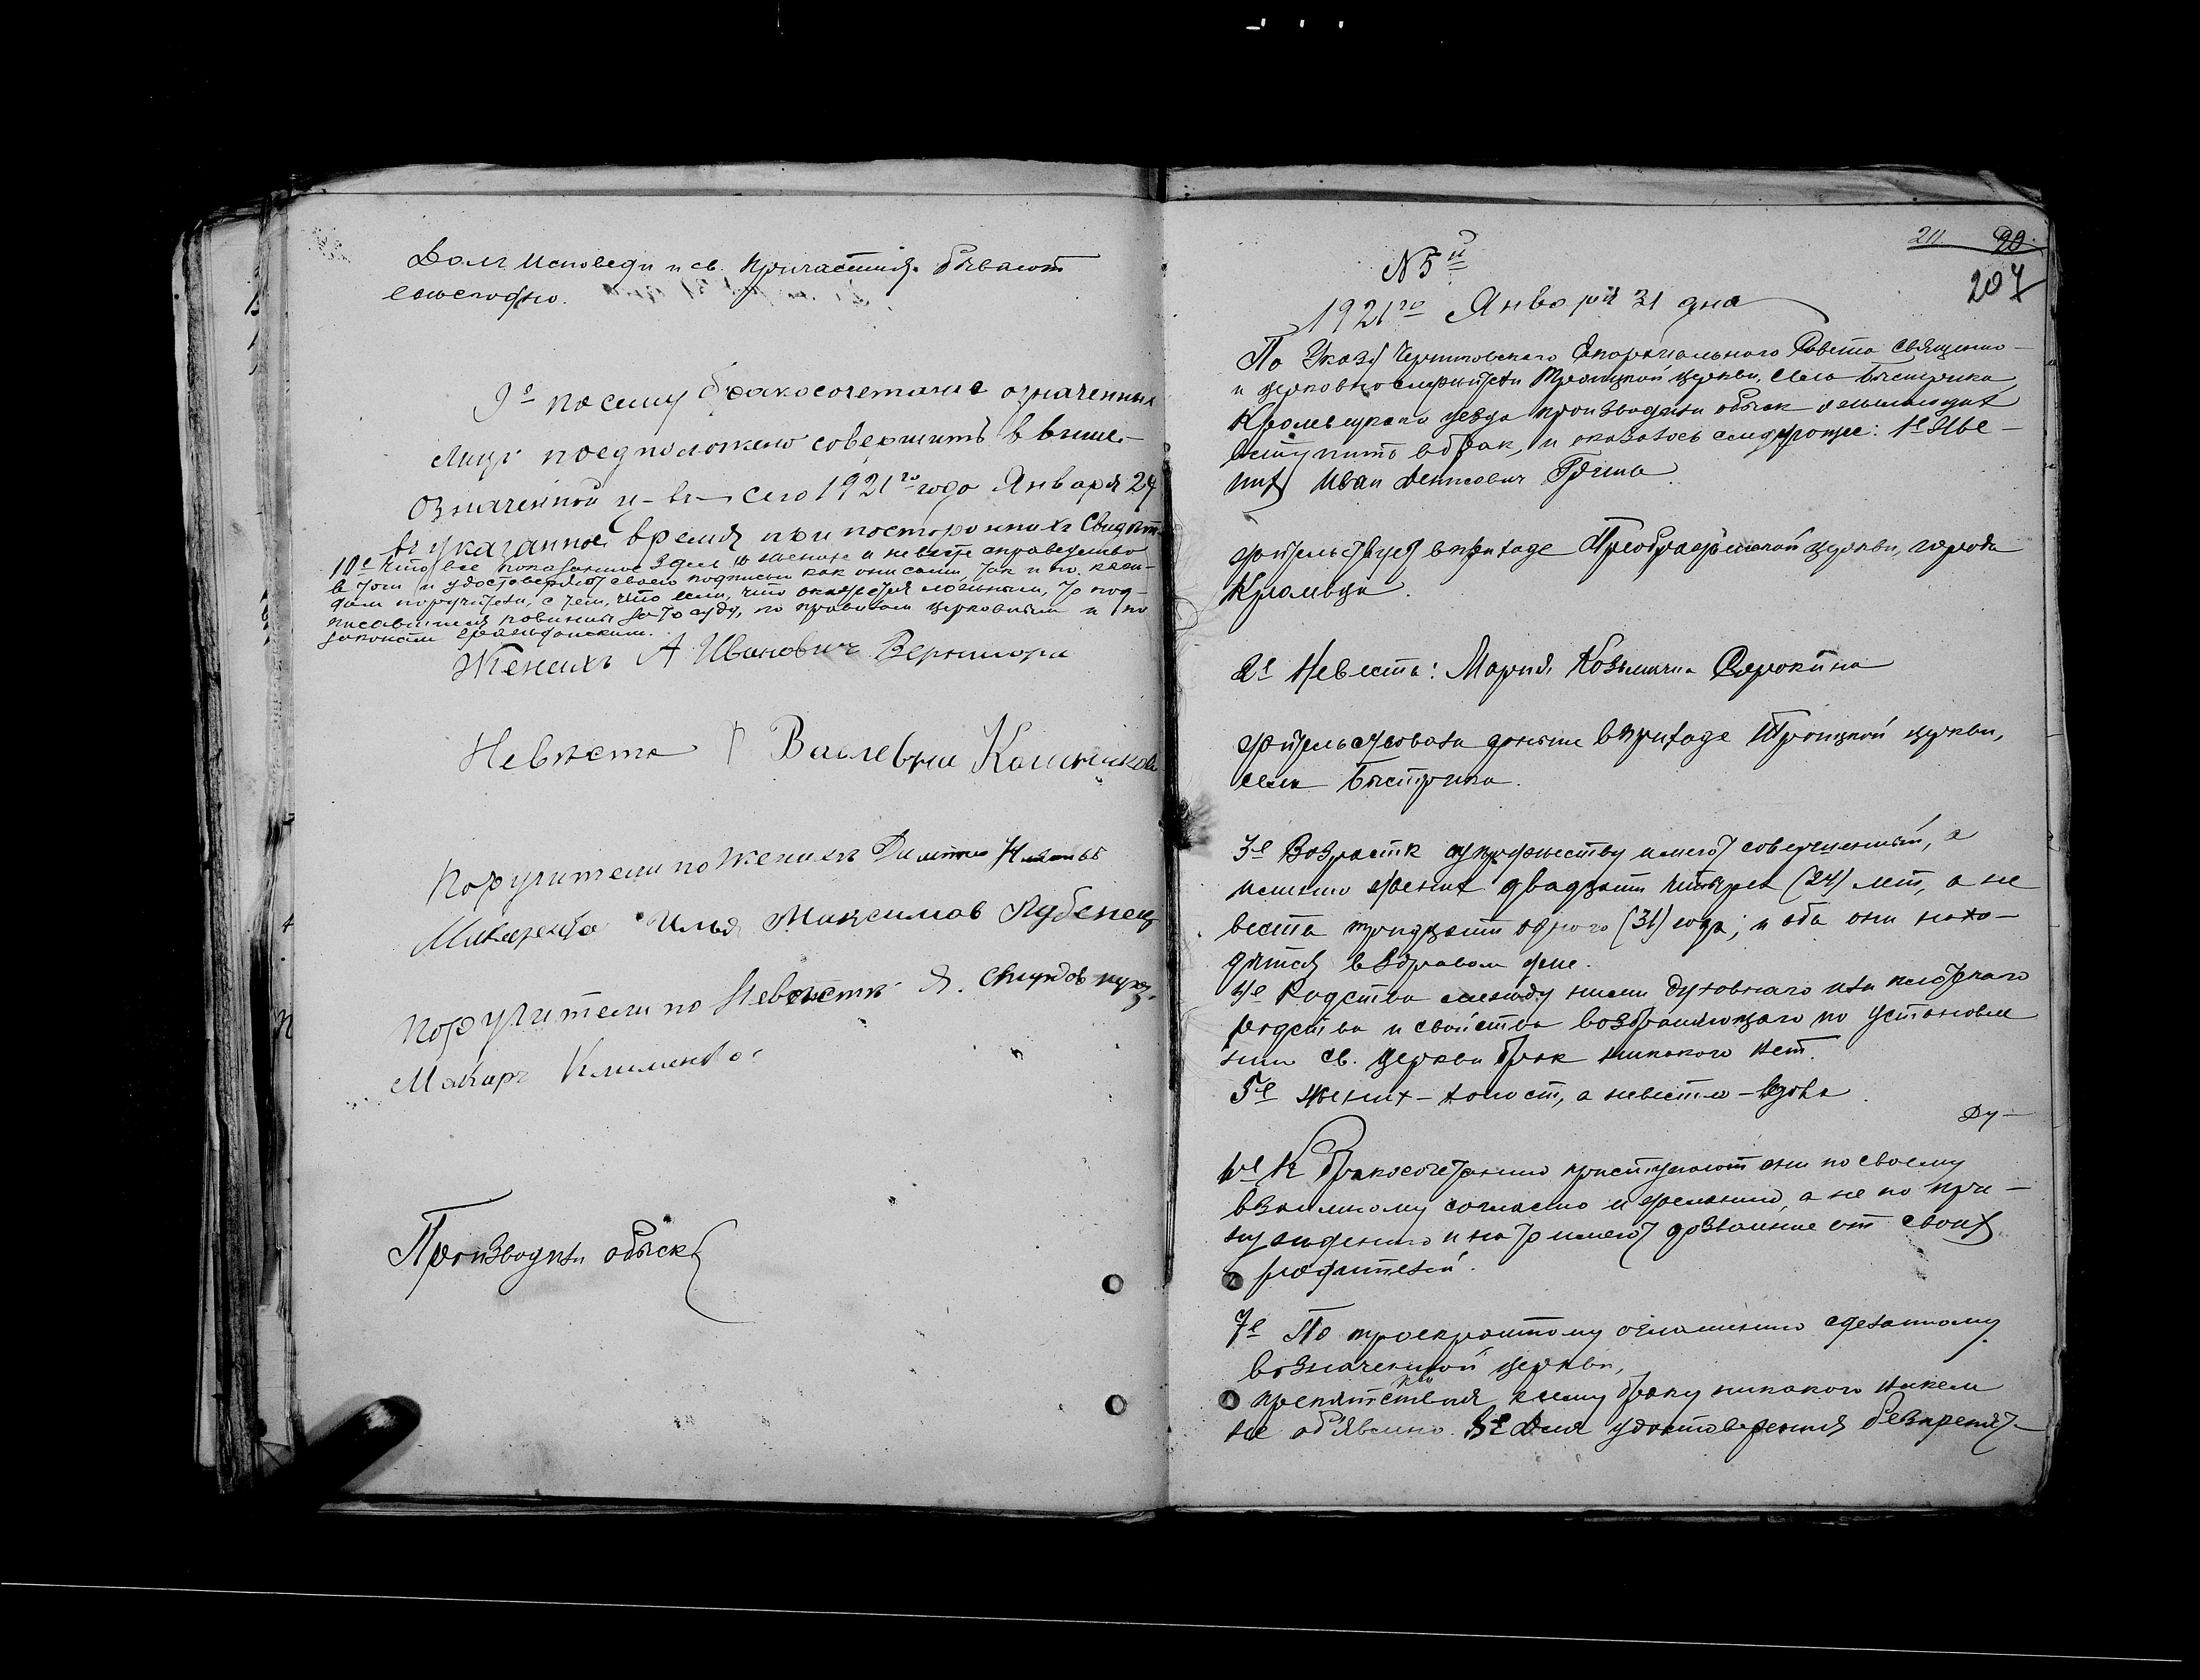 Долг исповеди и св. Причастия бывают
ежегодно.
9е По сему бракосочетание означенных
лиц предположено совершить в выше-
означенной ц-ви сего 1921го года Января 24
в указанное время при посторонних свидет.
10е Что все показанное здесь о женихе и невесте справедливо
в том и удостоверяют своею подписью как они сами, так и по
поручители, с тем, что если, что окажется ложным, то под-
писавшиеся повинны за то суду, по правилам церковным и по
законам гражданским.
Женихъ А Иванович
Невѣста Васильевна
Поручители по Женихѣ
Илья Максимов
Поручители по Невѣстѣ Я.
Макаръ Клименко
Производили обыск
20
207
N 5й
1921го Января 31 дня
По Указу Черниговского Епархиального Совета священно-
и церковнослужители Троицкой церкви, села Быстрика,
Кролевецкого уезда производили обыск о желающих
вступить в брак, и оказалось следующее: 1е Же-
них Иван Денисович
жительствует в приходе Преображенской церкви, города
Кролевца.
2е Невеста: Мария Козьминична Сорокина
жительствовала доныне в приходе Троицкой церкви,
села Быстрика.
3е Возраст к супружеству имеют совершенный, а
именно жених двадцати четырех (24) лет, а не
веста тридцати одного (31) года; и оба они нахо-
дятся в здравом уме.
4е Родства между ними духовнаго или плотскаго
родства и свойства возбраняющаго по установле
нию св. церкви брак никакого нет.
5е Жених - холост, а невеста - вдова.
6е К бракосочетанию приступают они по своему
взаимному согласию и желанию, а не по при-
нуждению и на то имеют дозволение от своих
родителей.
7е По троекратному оглашению сделанному
в означенной церкви,
препятствия к сему браку никакого никем
не объявлено. 8е Для удостоверения безпрепят-